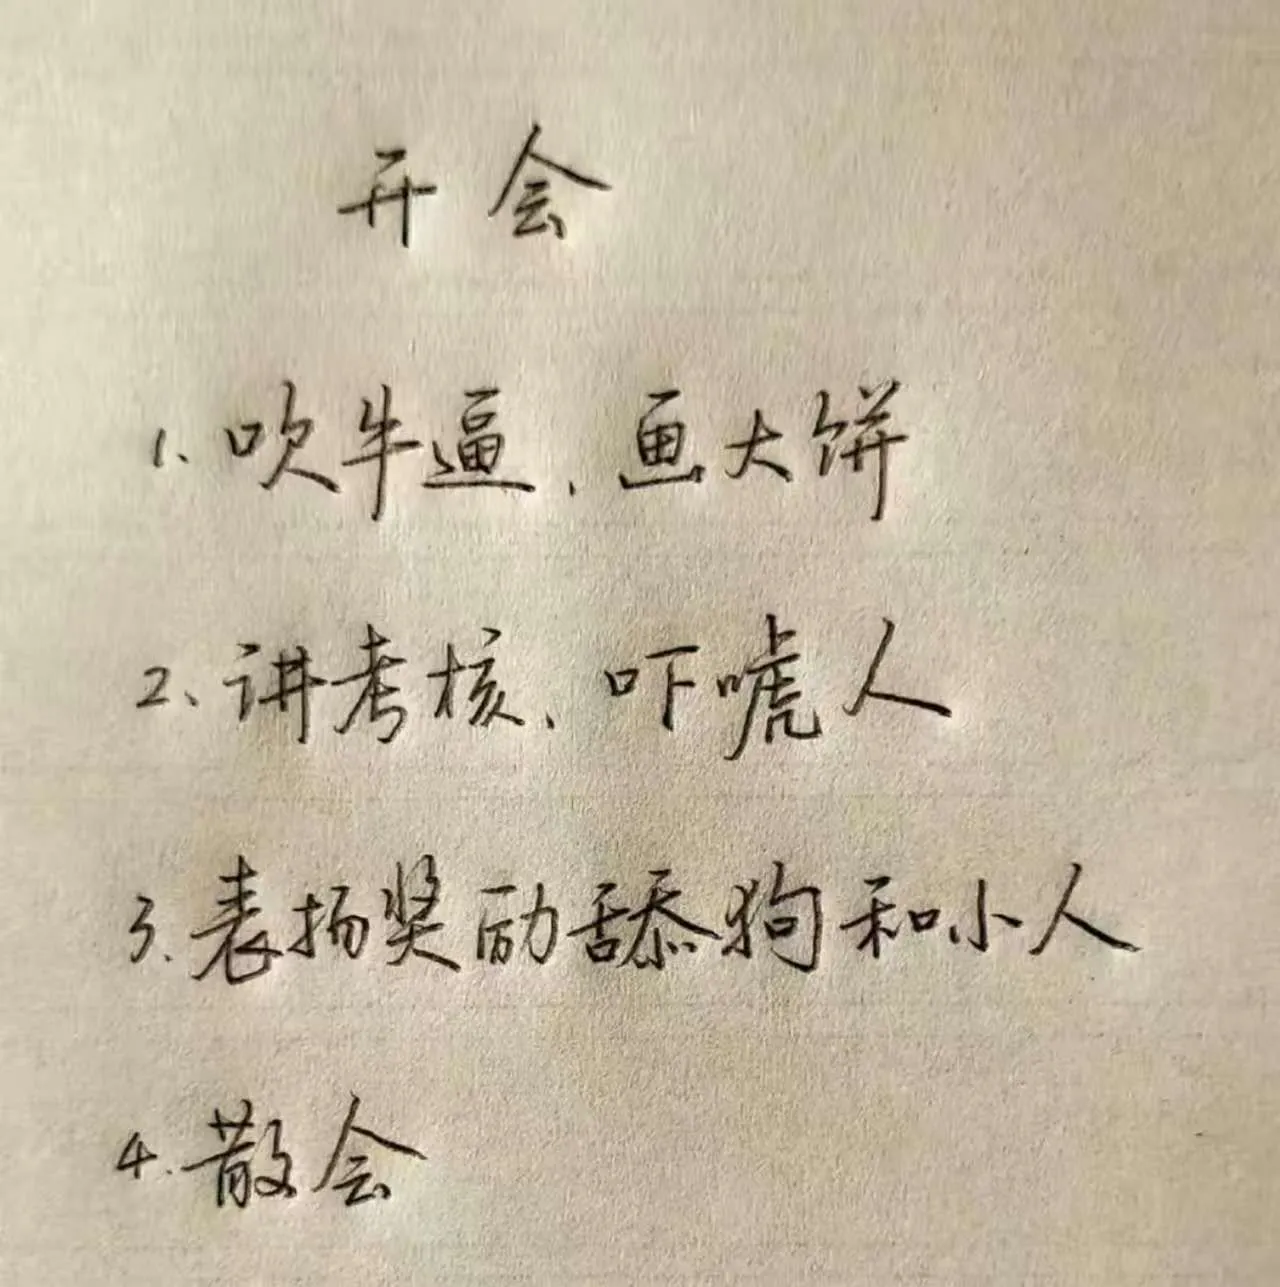 开会
1.吹牛逼、画大饼
2、讲考核、吓唬人
3.表扬奖励舔狗和小人
4.散会